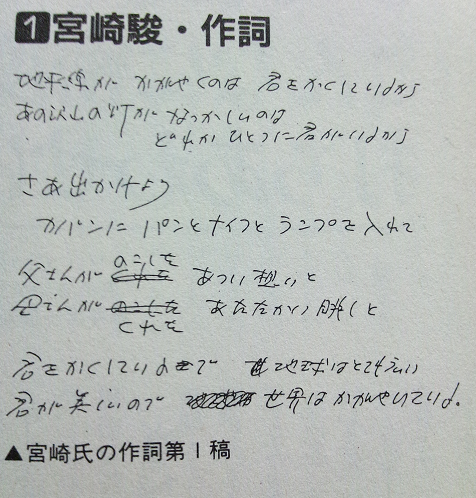 1宮崎駿・作詞
地平線が かがやくのは 君をかくしているから
あの沢山の灯が なつかしいのは
どれか ひとつに君がいるから
さあ出かけよう
カバンに パンとナイフとランプを入れて
のこした
父さんが くれた あつい想いと
母さんが のこした あたたかい
くれた
君をかくしているので 地球はとても
君が美しいので 世界はかがやいている。
▲宮崎氏の作詞第1稿